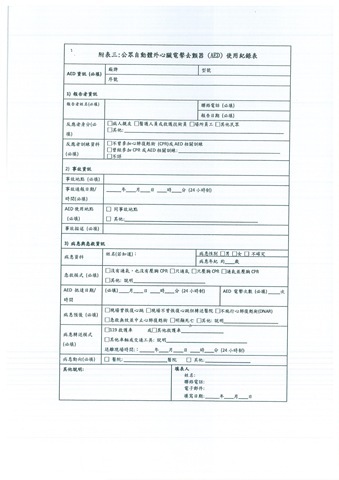 附表三:公眾自動體外心臟電擊去顫器 (AED) 使用紀錄表
AED 資訊 (必填) 廠牌 型號
序號
1) 報告者資訊
報告者姓名(必填) 聯絡電話 (必填)
報告日期 (必填)
反應者身分(必填) □病人親友 □醫護人員或救護技術員 □場所員工 □其他民眾
□其他:
反應者訓練資料 (必填) □不曾參加心肺復甦術 (CPR)或 AED 相關訓練
□曾經參加 CPR 或 AED 相關訓練:
□不詳
2) 事故資訊
事故地點 (必填)
事故通報日期/時間(必填) 年 月 日 時 分 (24 小時制)
AED 使用地點 (必填) □ 同事故地點
□ 其他:
事故描述 (必填)
3) 病患與急救資訊
病患資料 姓名(若知道): 病患性別 □男 □女 □不確定
病患年紀 約 歲
急救模式 (必填) □沒有通氣，也沒有壓胸 CPR □只通氣 □只壓胸 CPR □通氣及壓胸 CPR
□其他: 說明
AED 抵達日期/時間 (必填) 月 日 時 分 (24 小時制) AED 電擊次數 (必填) 次
病患預後 (必填) □現場曾恢復心跳 □現場不曾恢復心跳但轉送醫院 □不施行心肺復甦術(DNAR)
□急救無效並中止心肺復甦術 □明顯死亡 □其他: 說明
病患轉送模式 (必填) □119 救護車 或□其他救護車
□其他車輛或交通工具: 說明
送離現場時間: 年 月 日 時 分 (24 小時制)
病患動向(必填) □ 醫院: 醫院 □ 其他:
其他說明: 填表人
姓名:
聯絡電話:
電子郵件:
填寫日期: 年 月 日